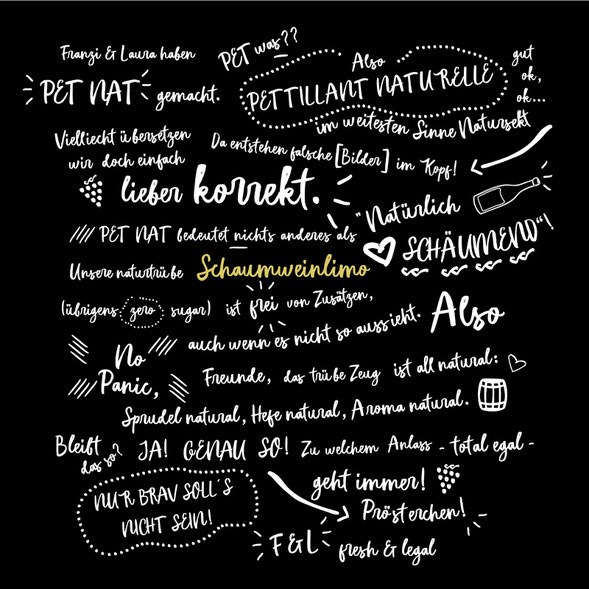 Franzi & Laura haben PET was??
PET NAT gemacht. Also gut
PETTILLANT NATURELLE ok,
ok...
im weitesten Sinne Natursekt
Vielliecht übersetzen
wir doch einfach Da entstehen falsche [Bilder] im Kopf!
lieber korrekt.
"Natürlich
SCHÄUMEND"!
PET NAT bedeutet nichts anderes als
Unsere naturtrübe Schaumweinlimo
(übrigens zero sugar) ist frei von Zusätzen,
auch wenn es nicht so aussieht. Also
No
Panic, Freunde, das trübe Zeug ist all natural:
Sprudel natural, Hefe natural, Aroma natural.
Bleibt
das so? JA! GENAU SO! Zu welchem Anlass - total egal -
geht immer!
NUR BRAV SOLL'S
NICHT SEIN!
Prösterchen!
F & L fresh & legal